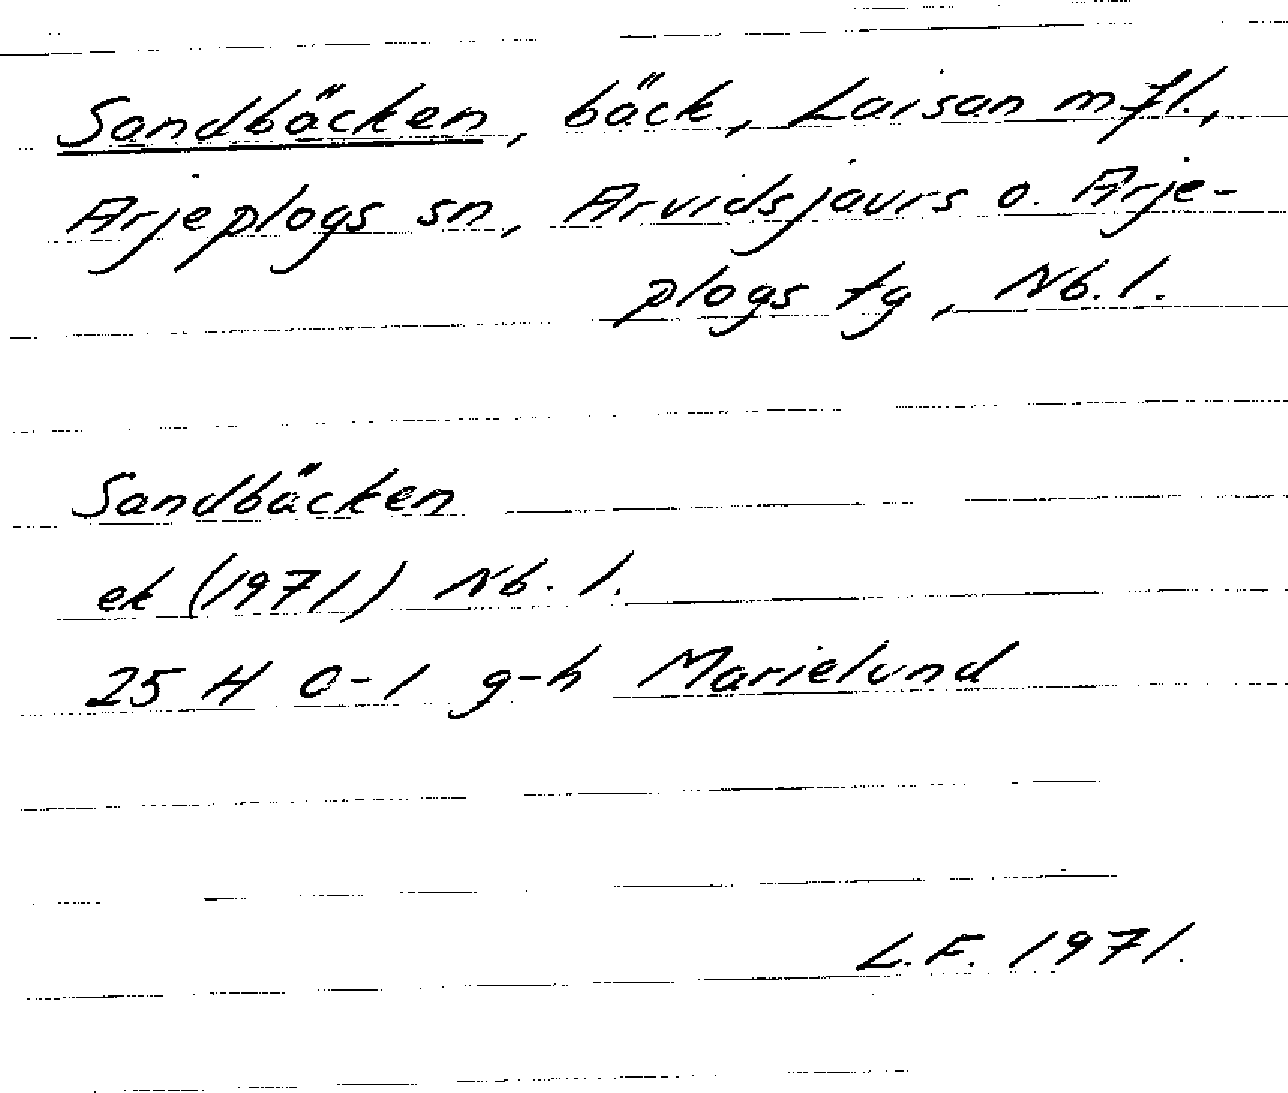 Sandbäcken, bäck, Laisan mfl.,
Arjeplogs sn, Arvidsjaurs o. Arje-
plogs tg, Nb. l.
Sandbäcken
ek (1971) Nb. l.
25 H 0-1 g-h Marielund
L.F. 1971.